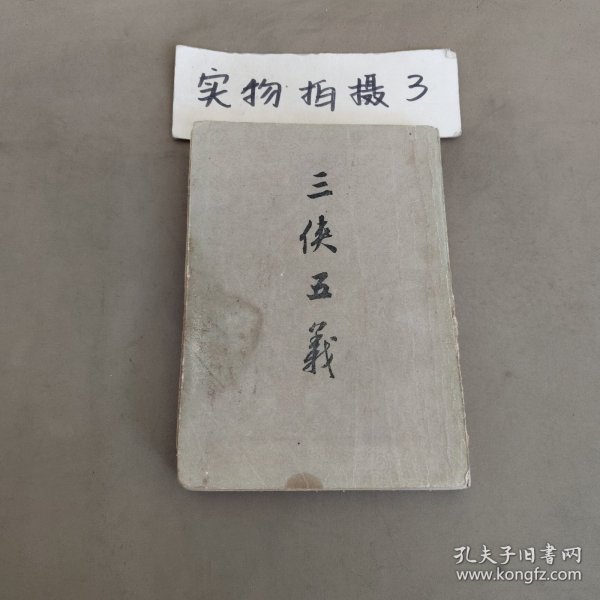 实物拍摄3
三侠五義
孔夫子旧书网
www.kongfz.com